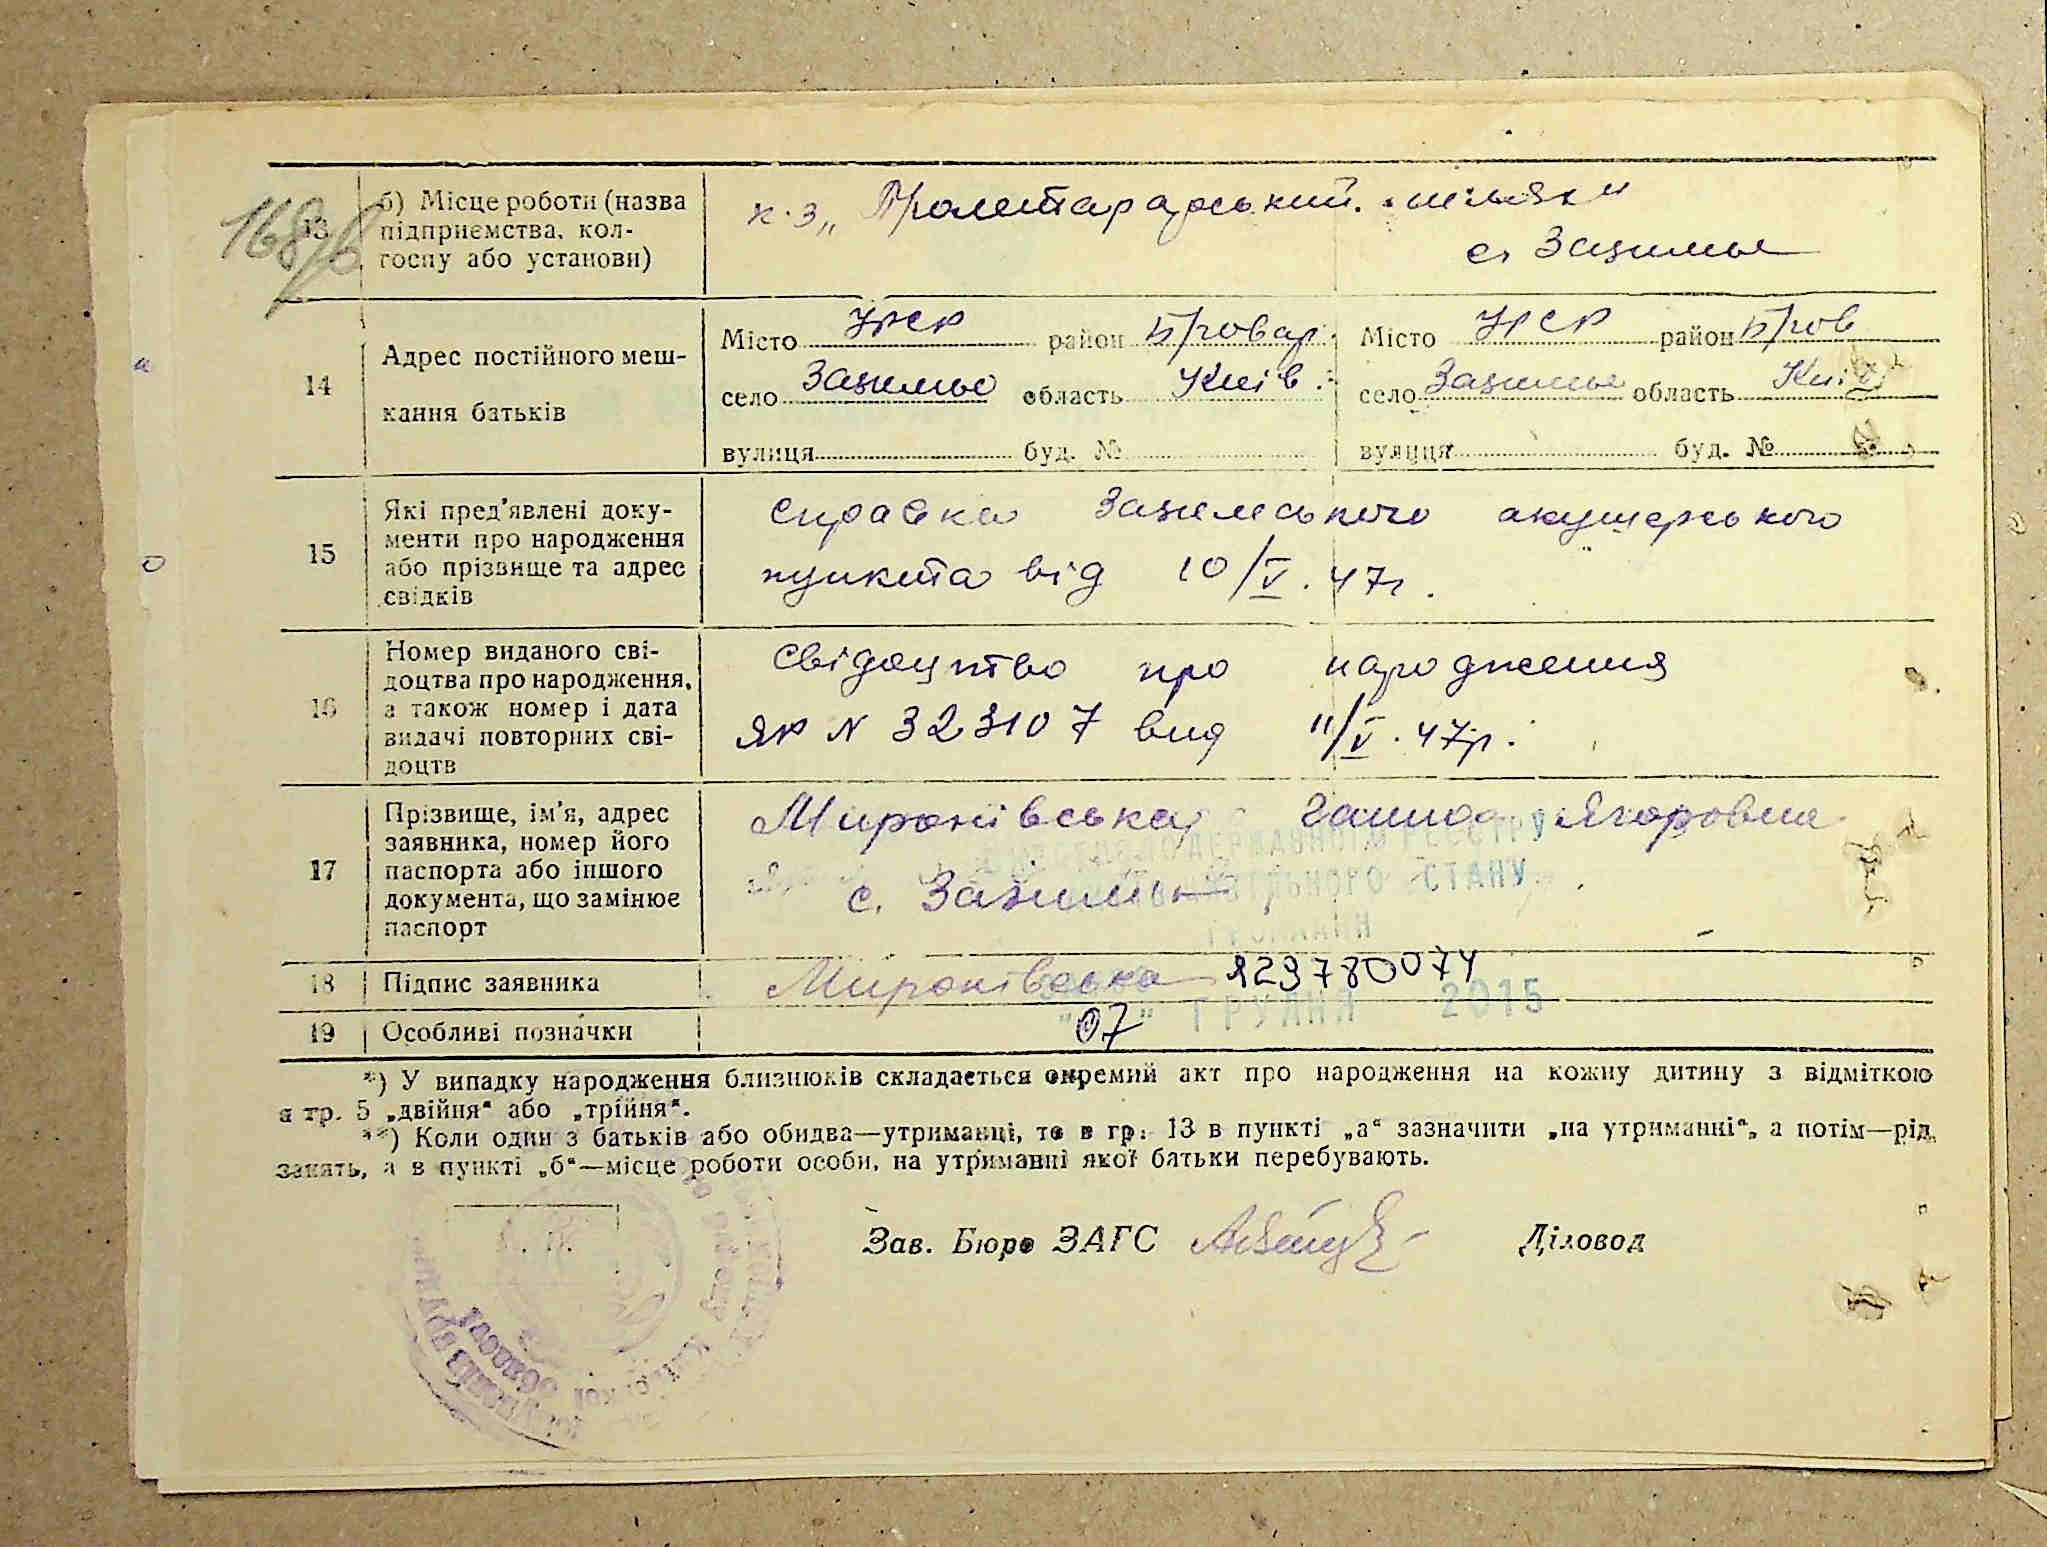 168зв
13
б) Місце роботи (назва
підприємства, кол-
госпу або установи)
к-з „Пролетарарський шлях"
с. Зазимье
14
Адрес постійного меш-
кання батьків
Місто УРСР район Бровар.
село Зазимье область Київ.
вулиця буд. №
Місто УРСР район Бров
село Зазимье область Київ
вулиця буд. №
15
Які пред'явлені доку-
менти про народження
або прізвище та адрес
свідків
справка Зазимського акушерського
пункта від 10/V. 47г.
16
Номер виданого сві-
доцтва про народження,
а також номер і дата
видачі повторних сві-
доцтв
свідоцтво про народження
ЯР N 323107 вид 11/V. 47р.
17
Прізвище, ім'я, адрес
заявника, номер його
паспорта або іншого
документа, що замінює
паспорт
Миронівська Ганна Ягоровна
с. Зазимье
ДЕРЖАВНОГО РЕЄСТРУ
СТАНУ
ГРОМАДЯН
18
Підпис заявника
Миронівська 129780074
19
Особливі позначки
"07" ГРУДНЯ 2015
*) У випадку народження близнюків складається окремий акт про народження на кожну дитину з відміткою
в гр. 5 „двійня" або „трійня".
**) Коли один з батьків або обидва—утриманці, то в гр. 13 в пункті „а" зазначити „на утриманні", а потім—рід
занять, а в пункті „б"—місце роботи особи, на утриманні якої батьки перебувають.
Зав. Бюро ЗАГС
Діловод